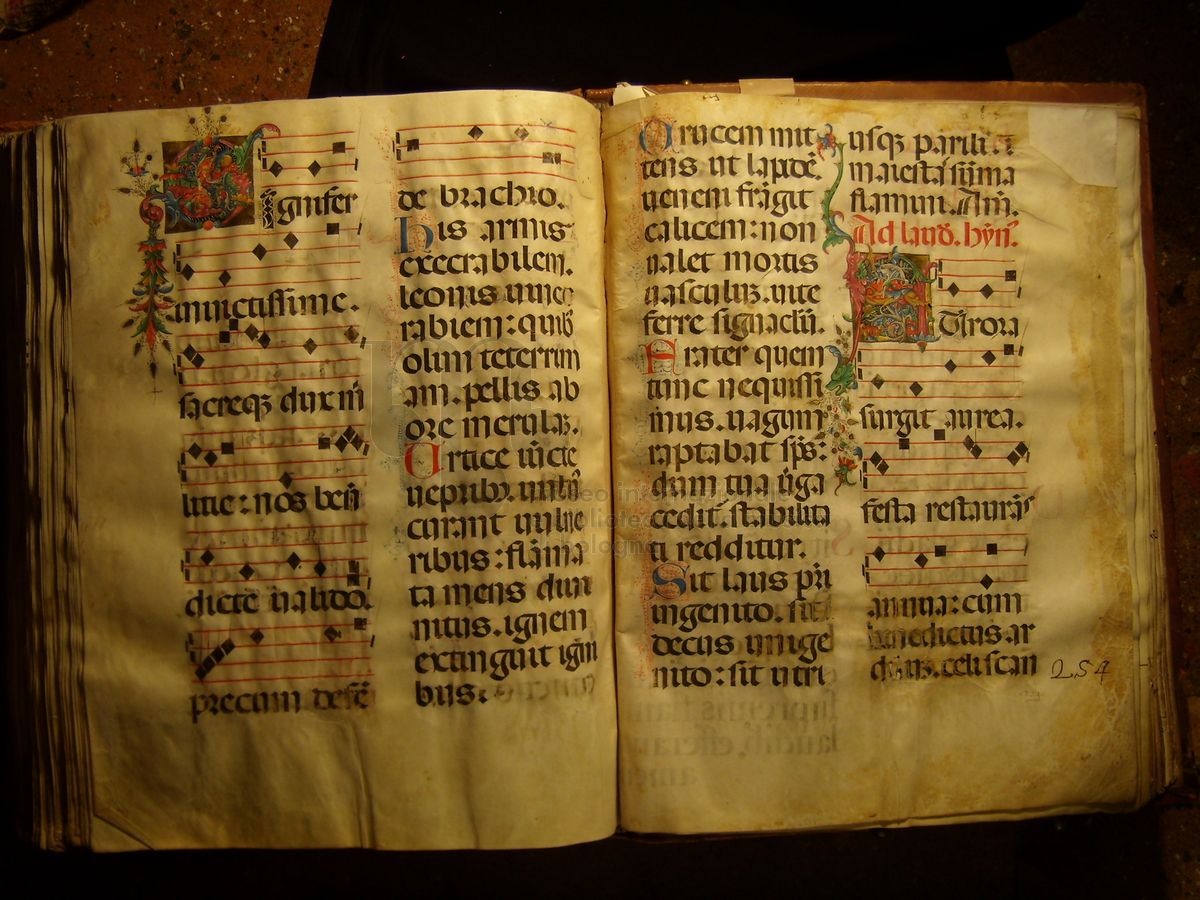 Signifer
invictissime.
sacreqz ducṁ
litie: nos bñ
dicte valido.
precum defẽ
de brachio.
his armis
execrabilem.
leonis unco
rabiem: quib
olim teterrim
am. pellis ab
ore
Urtice
veprib.
curant vulne
ribus: flãma
ta mens diu
nitus. ignem
extinguit igni
bus:
Crucem mit
tens ut lapdẽ
veneni frãgit
calicem: non
valet mortis
vasculuz. vite
ferre signacłi.
Frater quem
tunc nequissi
mus. vagum
raptabat sp̃s:
dum tua
cedit. stabilita
ti redditur.
Sit laus pr̃i
ingenito. sit
decus unige
nito: sit utri
usqz parili.
maiestas s̃uma
flamini. Am̃.
Ad laud. hyñ.
Aurora
surgit aurea.
festa restaurãs
annua: cum
benedictus ar
duuz. celi scan
254